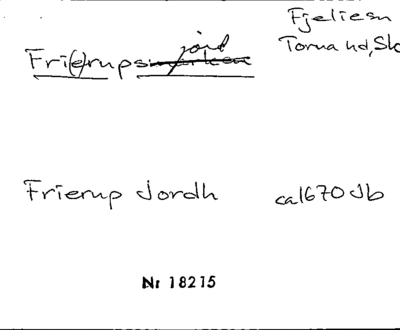 Fjeliesn
Torna hd, Sk
jord
Fri(e)rups
Frierup Jordh ca 1670 Jb
Nr 18215